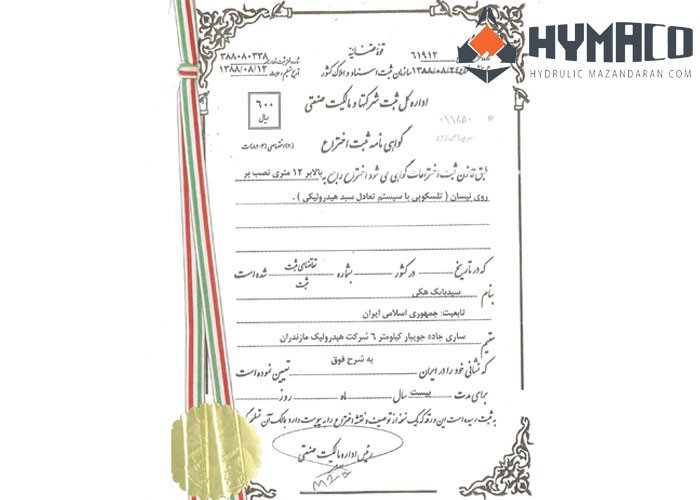 HYMACO
HYDRULIC MAZANDARAN COM
قوه قضائیه
۳۸۸۰۸۰۳۳۸
۱۳۸۸/۰۸/۱۳
۶۱۹۱۳
۱۳۸۸/۰۸/۲۴
سازمان ثبت اسناد و املاک کشور
اداره کل ثبت شرکتها و مالکیت صنعتی
۶۰۰
ریال
۰۶۶۸۵۰
گواهی نامه ثبت اختراع
طبق قانون ثبت اختراعات گواهی می شود اختراع راجع به بالابر ۱۲ متری نصب بر
روی نیسان ( تلسکوپی با سیستم تعادل سبد هیدرولیکی ) .
که در تاریخ در کشور بشماره تقاضای ثبت شده است
ثبت
بنام سیدبابک هکی
تابعیت: جمهوری اسلامی ایران
مقیم ساری جاده جویبار کیلومتر ۶ شرکت هیدرولیک مازندران
که نشانی خود را در ایران به شرح فوق تعیین نموده است
برای مدت بیست سال ماه روز
به ثبت رسیده است این ورقه که یک نسخه از توصیف و نقشه اختراع را به پیوست دارد بمالک آن
رئیس اداره مالکیت صنعتی